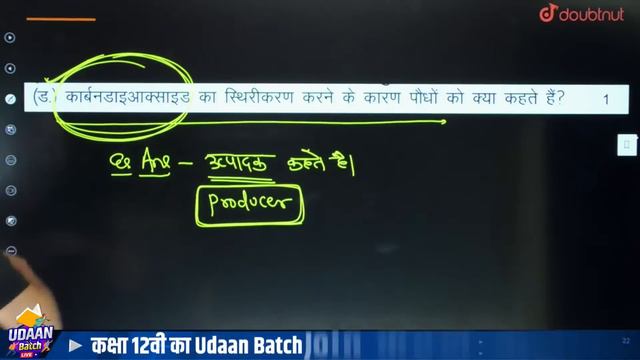 doubtnut
(ड.) कार्बनडाइआक्साइड का स्थिरीकरण करने के कारण पौधों को क्या कहते हैं? 1
Ans - उत्पादक कहते है।
Producer
UDAAN
Batch
LIVE
कक्षा 12वी का Udaan Batch
22